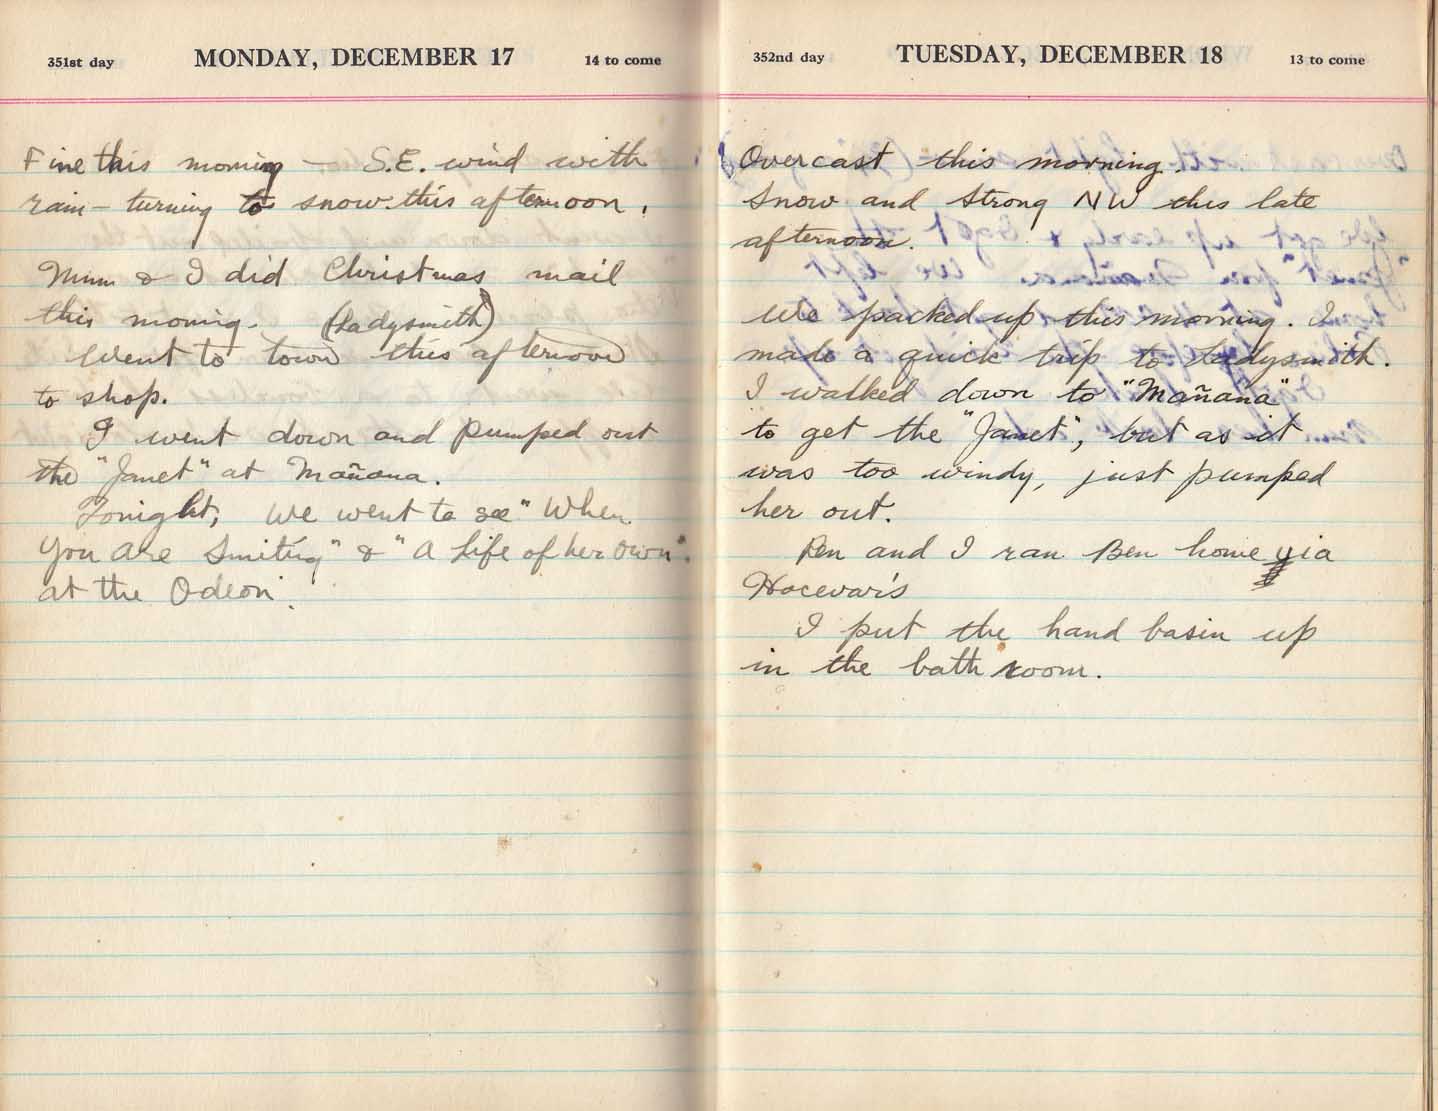 351st day MONDAY, DECEMBER 17 14 to come
Fine this morning — S.E. wind with
rain — turning to snow this afternoon.
Mum & I did Christmas mail
this morning. (Ladysmith)
Went to town this afternoon
to shop.
I went down and pumped out
the "Janet" at Mañana.
Tonight, we went to see "When
You Are Smiling" & "A Life of her Own".
at the Odeon.
352nd day TUESDAY, DECEMBER 18 13 to come
Overcast this morning.
Snow and Strong NW this late
afternoon.
We packed up this morning. I
made a quick trip to Ladysmith.
I walked down to "Mañana"
to get the "Janet", but as it
was too windy, just pumped
her out.
Pen and I ran Ben home via
Hocevar's
I put the hand basin up
in the bath room.